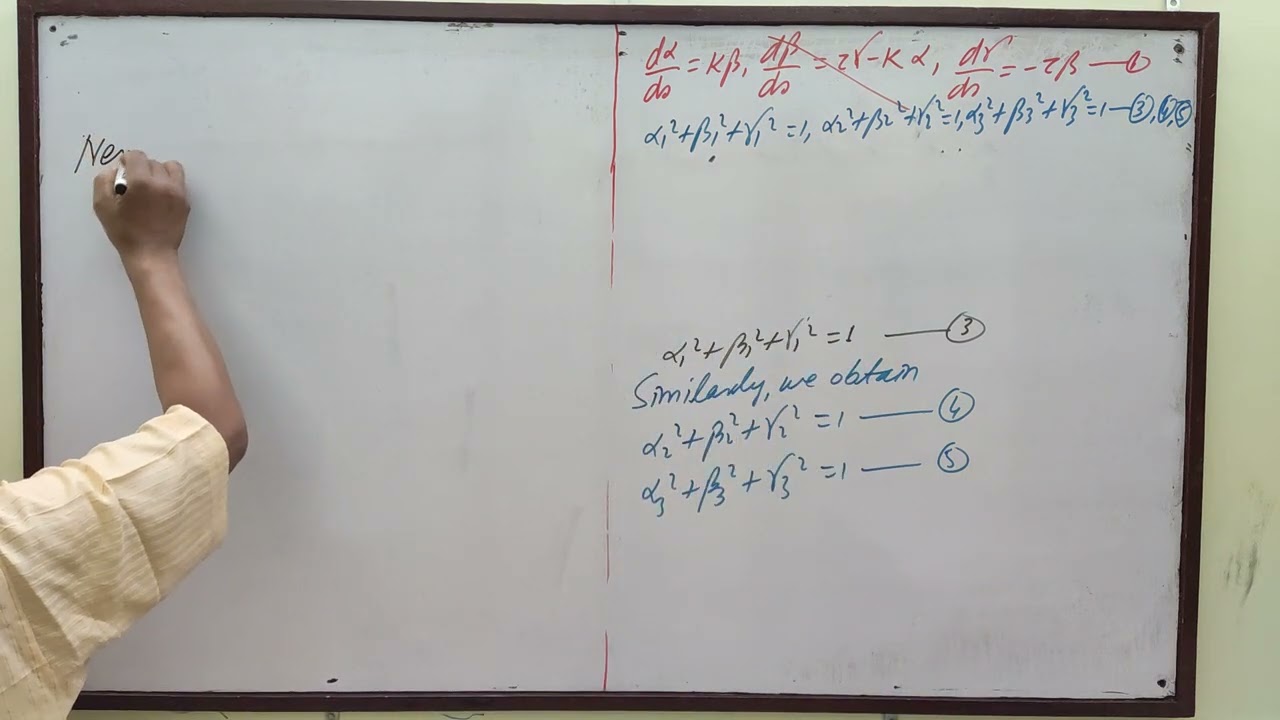 Ne
dα/ds = Kβ, dβ/ds = τγ-K α, dγ/ds = -τβ — ①
α₁²+β₁²+γ₁²=1, α₂²+β₂²+γ₂²=1, α₃²+β₃²+γ₃²=1 — ③,④,⑤
α₁²+β₁²+γ₁²=1 — ③
Similarly, we obtain
α₂²+β₂²+γ₂²=1 — ④
α₃²+β₃²+γ₃²=1 — ⑤